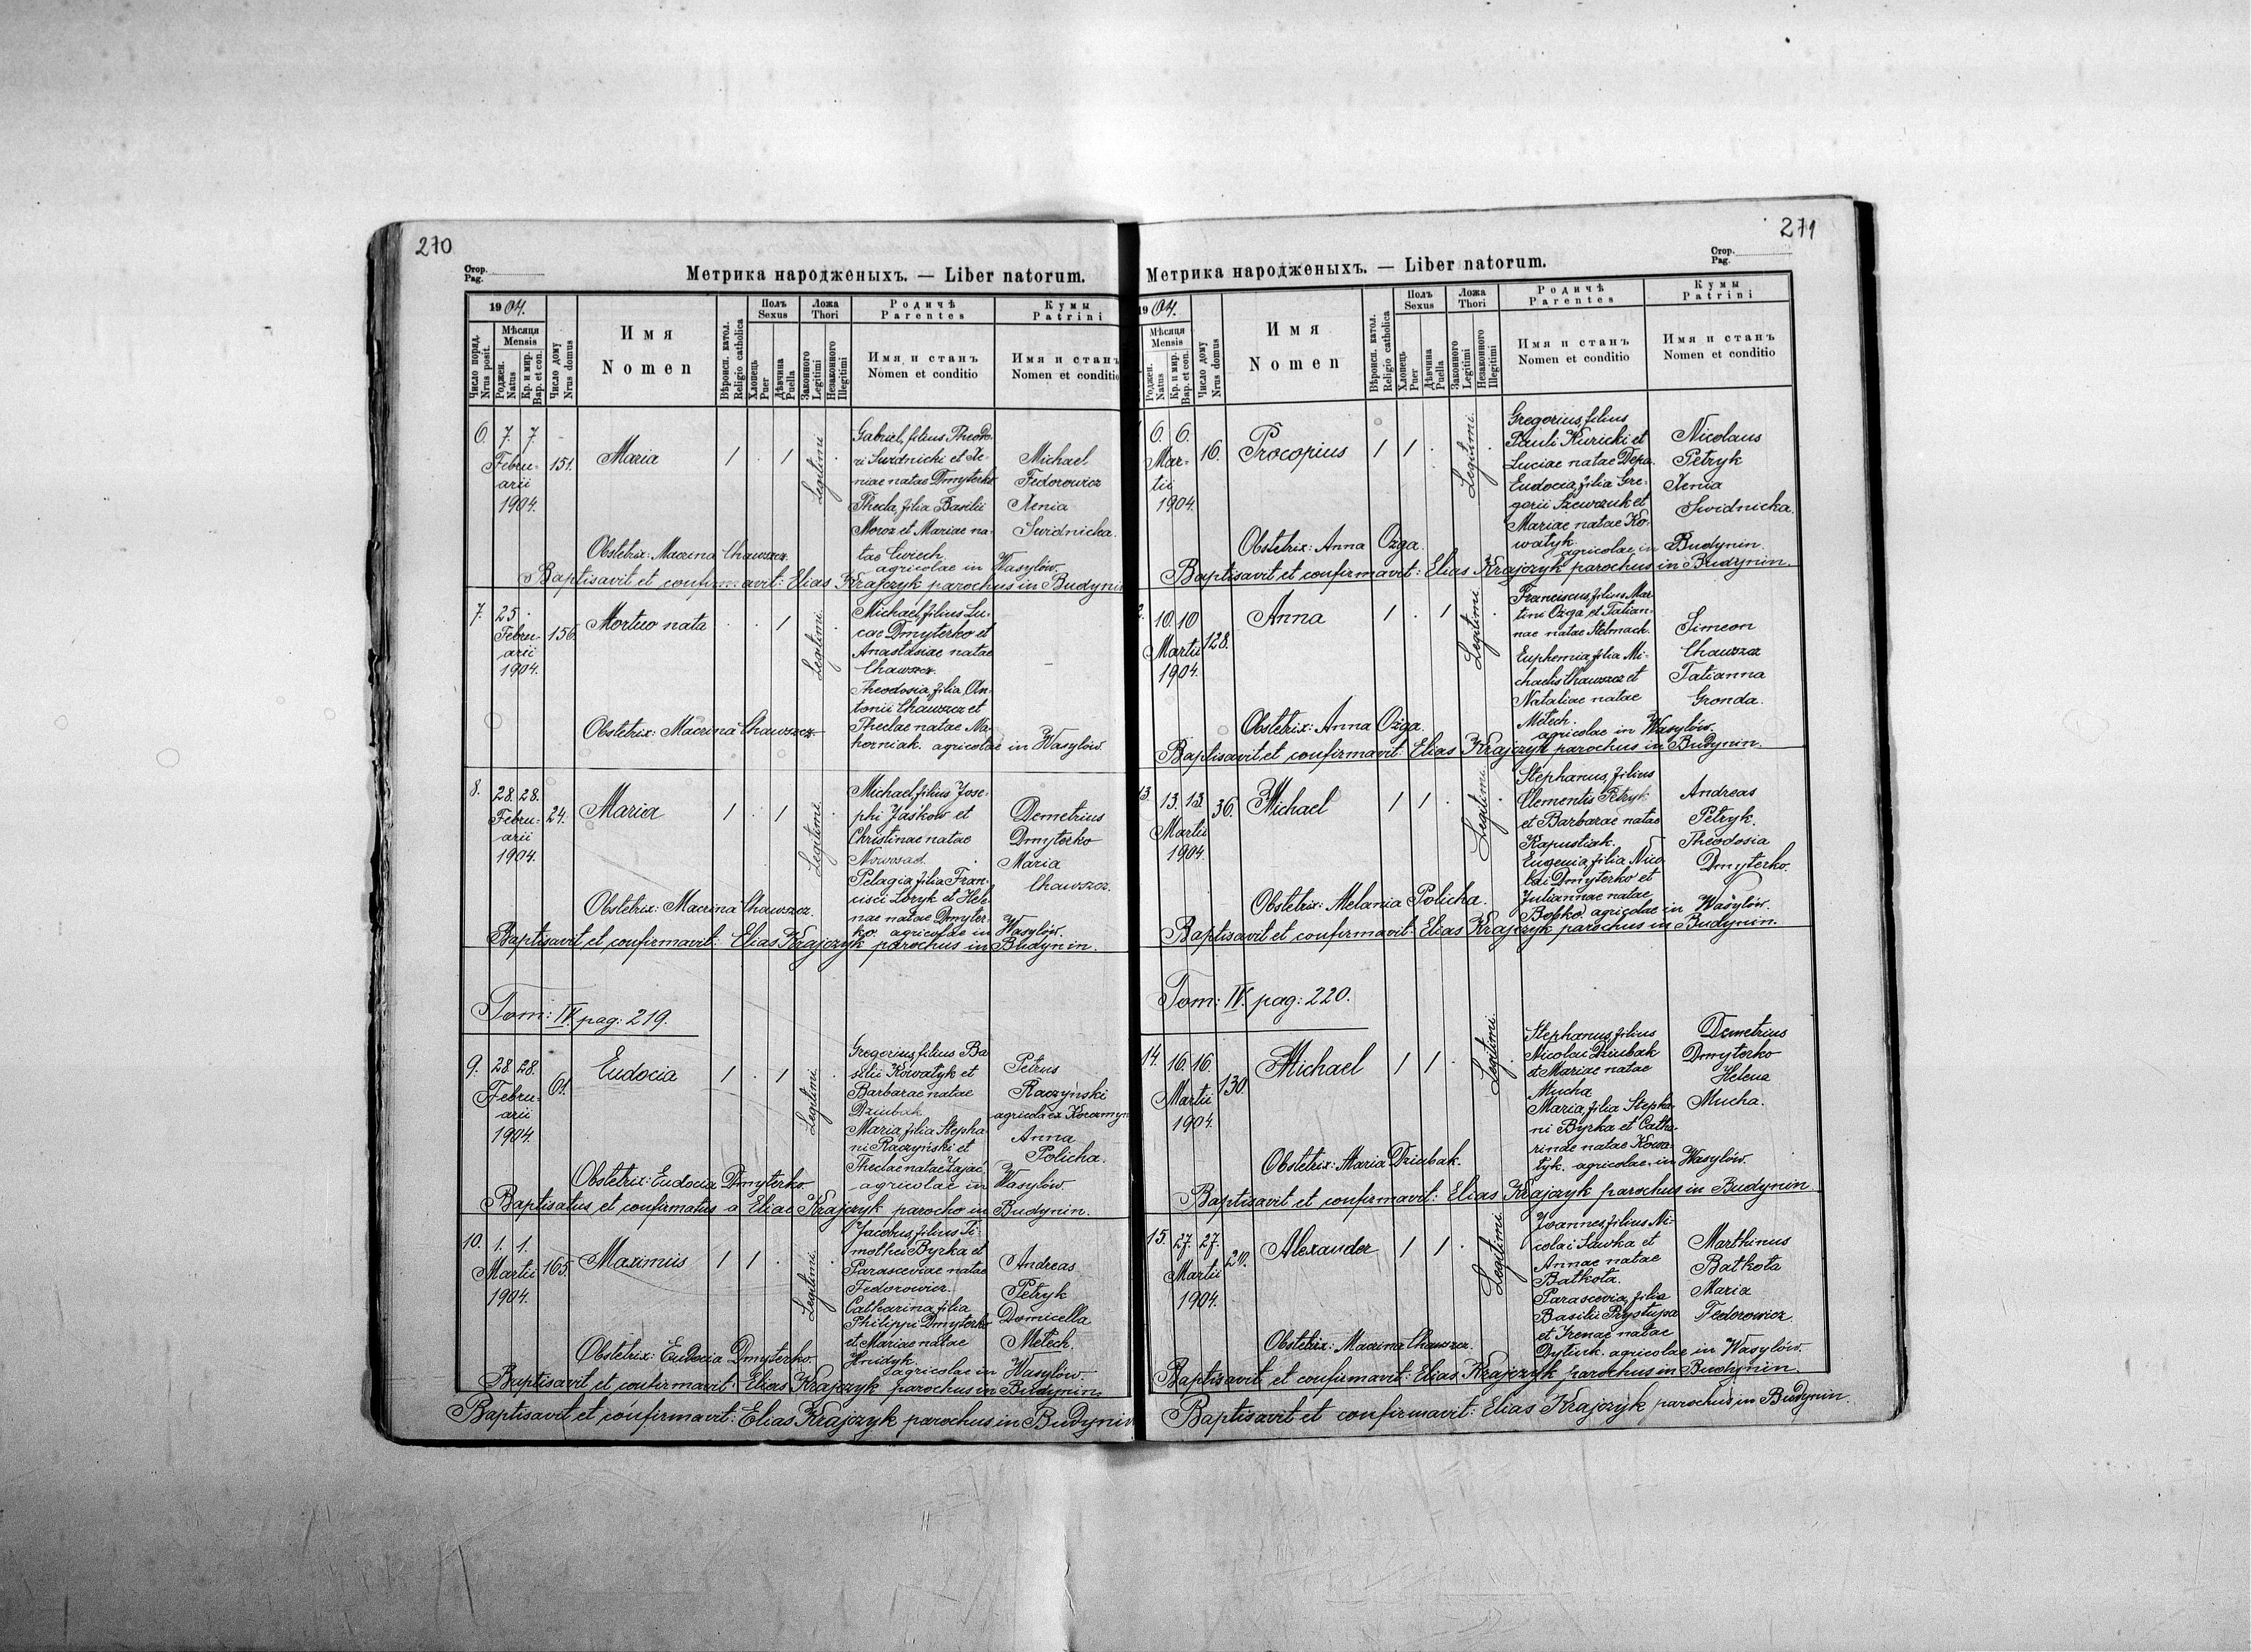 270
Стор.
Pag.
Метрика народженыхъ. — Liber natorum.
1904.
Число поряд.
Nrus posit.
Мѣсяця
Mensis
Роджен.
Natus
Кр. и мир.
Bap. et con.
Число дому
Nrus domus
Имя
Nomen
Вѣроисп. катол.
Religio catholica
Полъ
Sexus
Хлопець
Puer
Дѣвчина
Puella
Ложа
Thori
Законного
Legitimi
Незаконного
Illegitimi
Родичѣ
Parentes
Имя и станъ
Nomen et conditio
Кумы
Patrini
Имя и станъ
Nomen et conditio
6. 7. 7.
Febru-
arii
1904.
151.
Maria
1 . 1 .
Legitimi.
Gabriel, filius Theodo-
ri Swidnicki et Xe-
niae natae Dmyterko
Thecla, filia Basilii
Moroz et Mariae na-
tae Cwiech.
agricolae in Wasylów.
Michael
Fedorowicz
Xenia
Swidnicka.
Obstetrix: Macrina Chawszcz.
Baptisavit et confirmavit: Elias Krajczyk parochus in Budynin
7. 25
Febru-
arii
1904.
156.
Mortuo nata
. . 1 .
Legitimi.
Michael, filius Lu-
cae Dmyterko et
Anastasiae natae
Chawszcz.
Theodosia, filia An-
tonii Chawszcz et
Theclae natae Ma-
horniak. agricolae in Wasylów.
–
Obstetrix: Macrina Chawszcz.
8. 28. 28.
Febru-
arii
1904.
24.
Maria
1 . 1 .
Legitimi.
Michael, filius Jose-
phi Jaśków et
Christinae natae
Nowosad.
Pelagia, filia Fran-
cisci Loryk et Hele-
nae natae Dmyter-
ko. agricolae in Wasylów.
Demetrius
Dmyterko
Maria
Chawszcz.
Obstetrix: Macrina Chawszcz.
Baptisavit et confirmavit: Elias Krajczyk parochus in Budynin.
Tom: IV. pag: 219.
9. 28. 28.
Febru-
arii
1904.
61.
Eudocia
1 . 1 .
Legitimi.
Gregorius, filius Ba-
silii Kowatyk et
Barbarae natae
Dziubak
Maria, filia Stepha-
ni Raczyński et
Theclae natae Zając.
agricolae in Wasylów.
Petrus
Raczyński
agricola ex
Anna
Policha.
Obstetrix: Eudocia Dmyterko.
Baptisatus et confirmatus a Eliae Krajczyk parocho in Budynin.
10. 1. 1.
Martii
1904.
165.
Maximus
1 1 . .
Legitimi.
Jacobus, filius Ti-
mothei Byrka et
Parasceviae natae
Fedorowicz.
Catharina, filia
Philippi Dmyterko
et Mariae natae
Hnidyk.
agricolae in Wasylów.
Andreas
Petryk
Domicella
Metech.
Obstetrix: Eudocia Dmyterko.
Baptisavit et confirmavit: Elias Krajczyk parochus in Budynin.
Baptisavit et confirmavit: Elias Krajczyk parochus in Budynin
271
Стор.
Pag.
Метрика народженыхъ. — Liber natorum.
1904.
Мѣсяця
Mensis
Роджен.
Natus
Кр. и мир.
Bap. et con.
Число дому
Nrus domus
Имя
Nomen
Вѣроисп. катол.
Religio catholica
Полъ
Sexus
Хлопець
Puer
Дѣвчина
Puella
Ложа
Thori
Законного
Legitimi
Незаконного
Illegitimi
Родичѣ
Parentes
Имя и станъ
Nomen et conditio
Кумы
Patrini
Имя и станъ
Nomen et conditio
6. 6.
Mar-
tii
1904.
16.
Procopius
1 1 . .
Legitimi.
Gregorius, filius
Pauli Kuricki et
Luciae natae Depa.
Eudocia, filia Gre-
gorii Szewczuk et
Mariae natae Ko-
watyk.
agricolae in Budynin.
Nicolaus
Petryk
Xenia
Swidnicka.
Obstetrix: Anna Ozga.
Baptisavit et confirmavit: Elias Krajczyk parochus in Budynin.
2. 10. 10
Martii
1904.
128.
Anna
1 . 1 .
Legitimi.
Franciscus, filius Mar-
tini Ozga et Tatian-
nae natae Stelmach.
Euphemia, filia Mi-
chaelis Chawszcz et
Nataliae natae
Metech.
agricolae in Wasylów.
Simeon
Chawszcz
Tatianna
Gronda.
Obstetrix: Anna Ozga.
Baptisavit et confirmavit: Elias Krajczyk parochus in Budynin.
13. 13. 13.
Martii
1904.
36.
Michael
1 1 . .
Legitimi.
Stephanus, filius
Clementis Petryk
et Barbarae natae
Kapustiak.
Eugenia, filia Nico-
lai Dmyterko et
Juliannae natae
Bopko. agricolae in Wasylów.
Andreas
Petryk.
Theodosia
Dmyterko.
Obstetrix: Melania Policha.
Baptisavit et confirmavit: Elias Krajczyk parochus in Budynin.
Tom: IV. pag: 220.
14. 16. 16.
Martii
1904.
130.
Michael
1 1 . .
Legitimi.
Stephanus, filius
Nicolai Dziubak
et Mariae natae
Mucha
Maria, filia Stepha-
ni Byrka et Catha-
rinae natae Kowa-
tyk. agricolae in Wasylów.
Demetrius
Dmyterko
Helena
Mucha.
Obstetrix: Maria Dziubak.
Baptisavit et confirmavit: Elias Krajczyk parochus in Budynin
15. 27. 27.
Martii
1904.
210.
Alexander
1 1 .
Legitimi.
Joannes, filius Ni-
colai Sawka et
Annae natae
Batkota.
Parascevia, filia
Basilii Prystupa
et Irenae natae
Dytiuk. agricolae in Wasylów.
Marthinus
Batkota
Maria
Fedorowicz.
Obstetrix: Macrina Chawszcz.
Baptisavit et confirmavit: Elias Krajczyk parochus in Budynin.
Baptisavit et confirmavit: Elias Krajczyk parochus in Budynin.